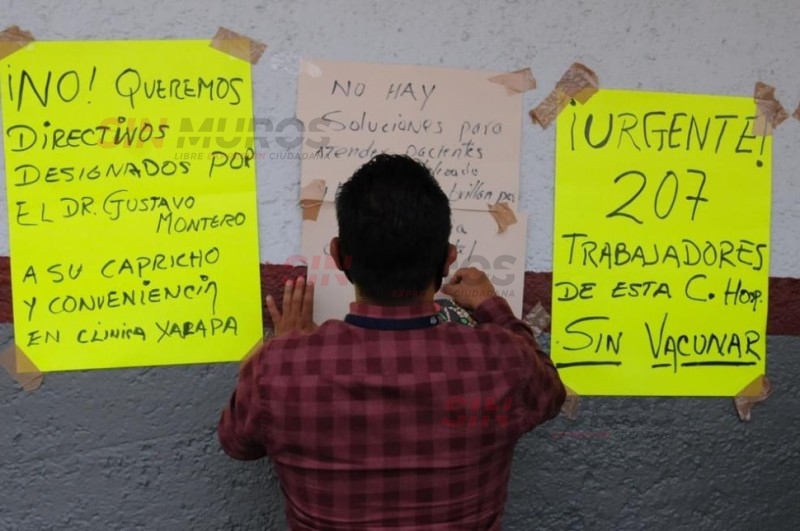 ¡NO! QUEREMOS
DIRECTIVOS
DESIGNADOS POR
EL DR. GUSTAVO
MONTERO
A SU CAPRICHO
Y CONVENIENCIA
EN CLINICA XALAPA
NO HAY
Soluciones para
atender pacientes
¡URGENTE!
207
TRABAJADORES
DE ESTA C. HOSP.
SIN VACUNAR
SIN MUROS